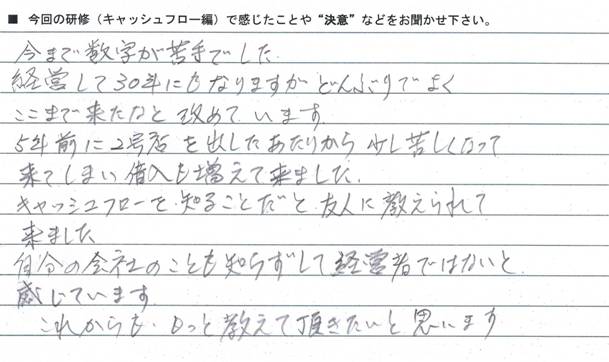 ■ 今回の研修（キャッシュフロー編）で感じたことや“決意”などをお聞かせ下さい。
今まで数字が苦手でした
経営して30年にもなりますがどんぶりでよく
ここまで来たなと改めています
5年前に2号店を出したあたりから少し苦しくなって
来てしまい借入も増えて来ました.
キャッシュフローを知ることだと友人に教えられて
来ました
自分の会社のことも知らずして経営者ではないと
感じています
これからも.もっと教えて頂きたいと思います